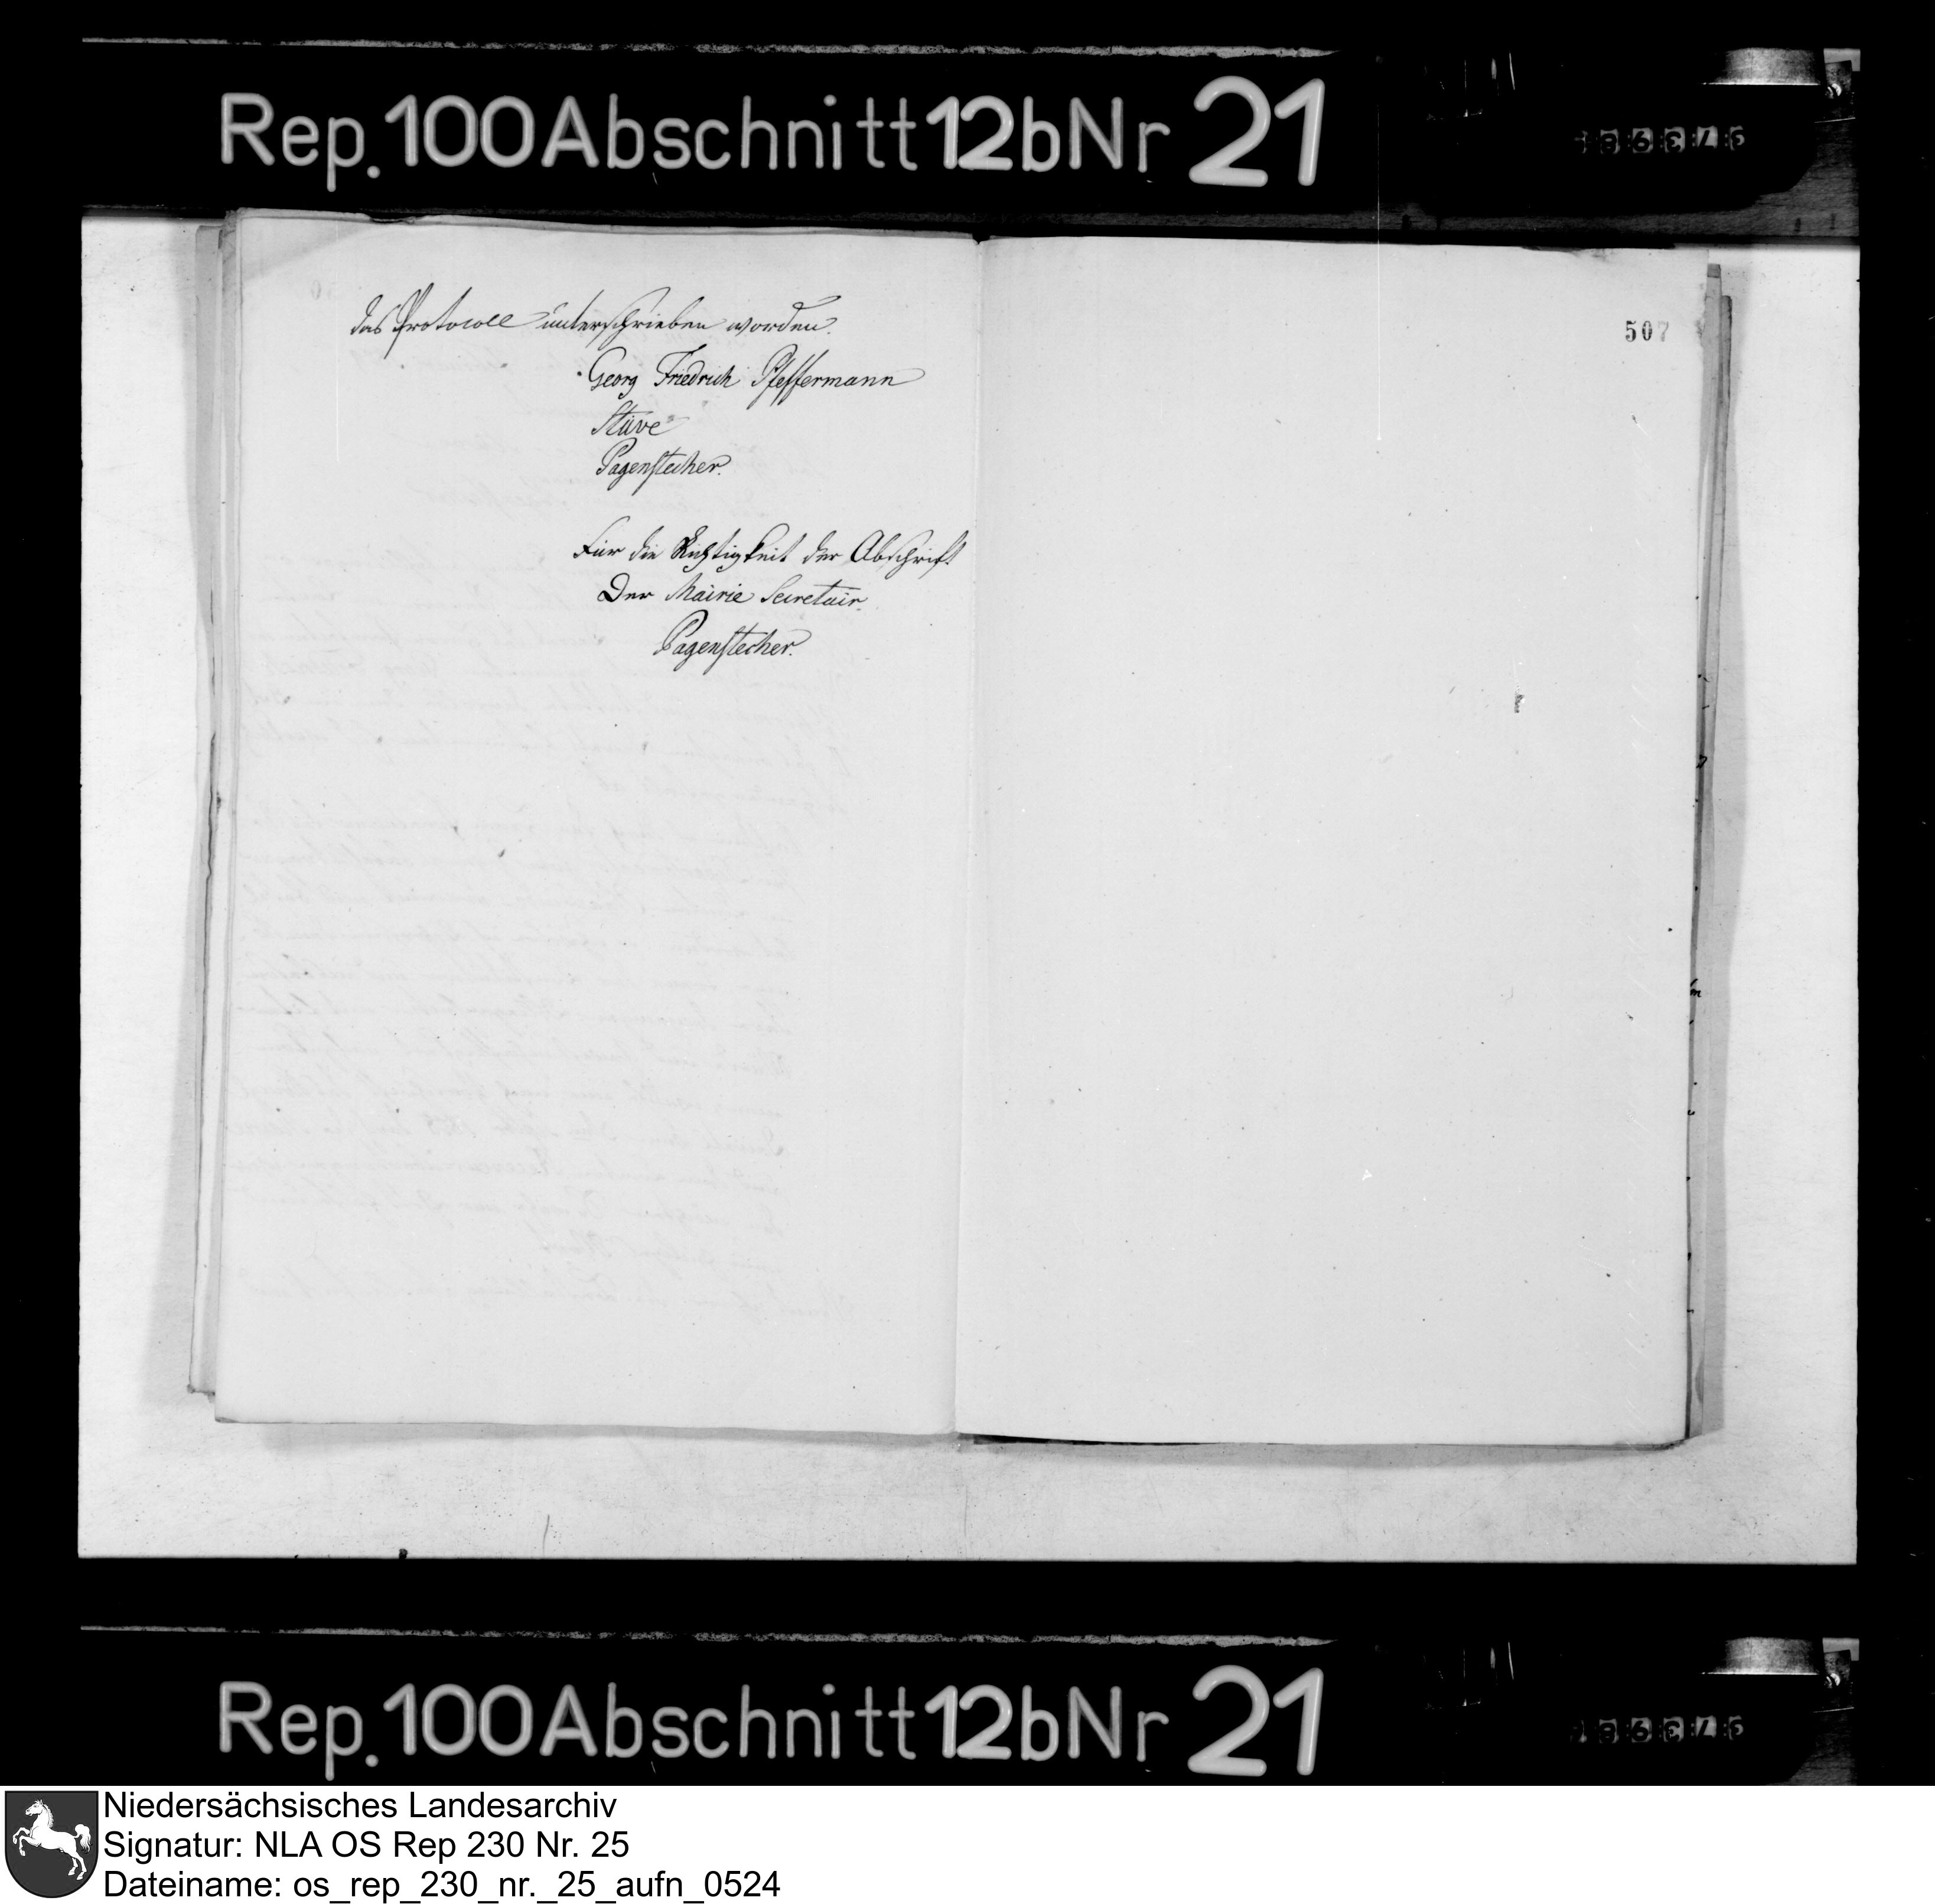 Rep. 100 Abschnitt 12b Nr 21
das Protocoll unterschrieben worden.
Georg Friedrich Pfeffermann
Stüve
Pagenstecher.
Für die Richtigkeit der Abschrift
Der Mairie Secretair.
Pagenstecher.
507
Rep. 100 Abschnitt 12b Nr 21
Niedersächsisches Landesarchiv
Signatur: NLA OS Rep 230 Nr. 25
Dateiname: os_rep_230_nr._25_aufn_0524